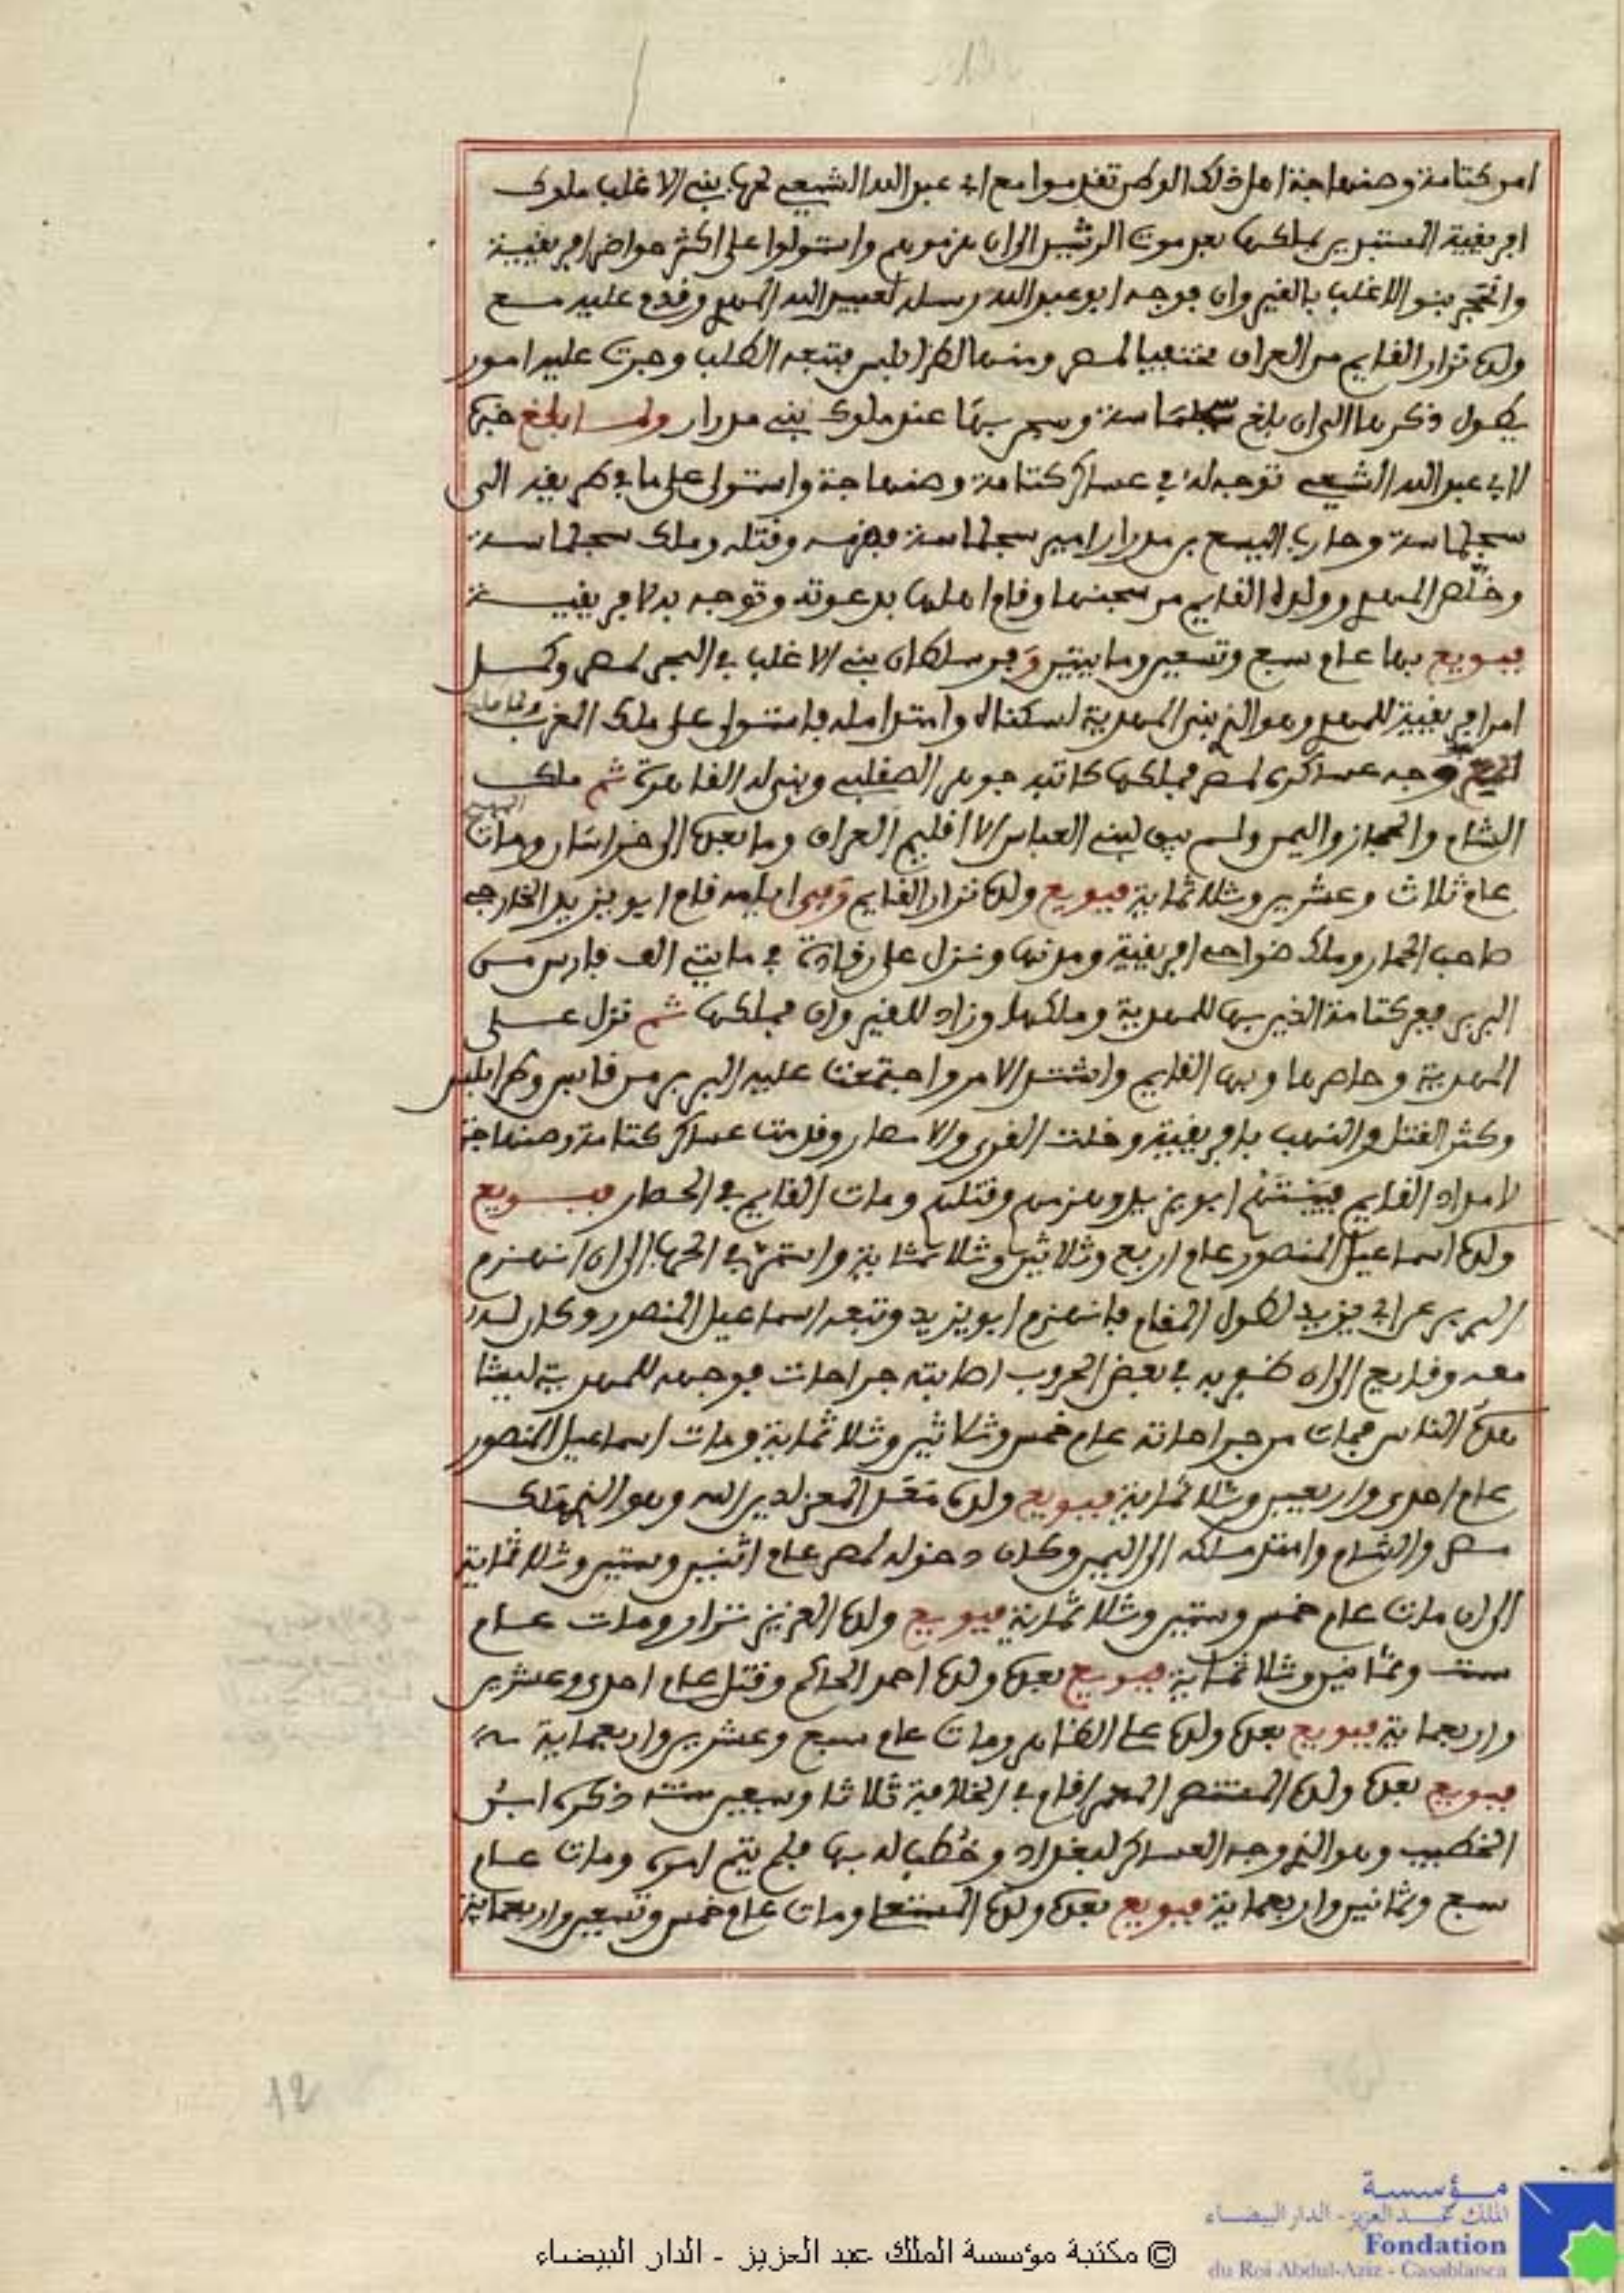 امر كتامة وصنهاجة اهل ذلك الوطن تقدموا مع ابي عبد الله الشيعي لحرب بني الاغلب ملوك
افريقية المستبدين بملكها بعد موت الرشيد الى ان هزموهم واستولوا على اكثر حواضر افريقية
وانحجر بنو الاغلب بالقيروان فوجه ابو عبد الله رسله لعبيد الله المهدي وقدم عليه مع
ولده نزار القايم من العراق مختفيا لمصر ومنها لطرابلس فتبعه الطلب وجرت عليه امور
يطول ذكرها الى ان بلغ سجلماسة وسجن بها عند ملوك بني مدرار ولما بلغ خبره
لابي عبد الله الشيعي توجه له في عساكر كتامة وصنهاجة واستولى على ما في طريقه الى
سجلماسة وحارب اليسع بن مدرار امير سجلماسة فهزمه وقتله وملك سجلماسة
وخلّص المهدي وولده القايم من سجنها وقام اهلها بدعوته وتوجه به لافريقيــة
فبويع بها عام سبع وتسعين ومايتين وفر سلطان بني الاغلب في البحر لمصر وكمل
امر افريقية للمهدي وهو الذي بنى المهدية لسكناه وامتد امله فاستولى على ملك المغرب
وجه عساكره لمصر فملكها كاتبه جوهر الصقلبي وبنى له القاهرة ثم ملك
الشام والحجاز واليمن ولم يبق لبني العباس الا اقليم العراق وما بعده الى خراسان ومات
عام ثلاث وعشرين وثلاثماية فبويع ولده نزار القايم وفي ايامه قام ابو يزيد الخارجي
صاحب الحمار وملك ضواحي افريقية ومدنها ونزل على رقادة في مايتي الف فارس من
البربر ففر كتامة الذين بها للمهدية وملكها وزاد للقيروان فملكها ثم نزل على
المهدية وحاصرها وبها القايم واشتد الامر واجتمعت عليه البربر من قابس وطرابلس
وكثر القتل والنهب بافريقية وخلت القرى والامصار وقدمت عساكر كتامة وصنهاجة
لامداد القايم فبيّتهم ابو يزيد وهزمهم وقتلهم ومات القايم في الحصار فبـويع
ولده اسماعيل المنصور عام اربع وثلاثين وثلاثماية واستمر في الحرب الى ان انهزم
البربر عن ابي يزيد لطول المقام فانهزم ابو يزيد وتبعه اسماعيل المنصور وكان له
معه وقايع الى ان ظفر به في بعض الحروب اصابته جراحات فوجهه للمهدية ليشا
هده الناس فمات من جراحاته عام خمس وثلاثين وثلاثماية ومات اسماعيل المنصور
عام احدى واربعين وثلاثماية فبويع ولده مَعَد المعز لدين الله وهو الذي ملك
مصر والشام وامتد ملكه الى اليمن وكان دخوله لمصر عام اثنين وستين وثلاثماية
الى ان مات عام خمس وستين وثلاثماية فبويع ولده العزيز نزار ومات عـام
ست وثمانين وثلاثماية فبويع بعده ولده احمد الحاكم وقتل عام احدى وعشرين
واربعماية فبويع بعده ولده علي الظاهر ومات عام سبع وعشرين واربعماية
فبويع بعده ولده المستنصر المعمر اقام في الخلافة ثلاثا وسبعين سنة ذكره ابن
الخطيب وهو الذي وجه العساكر لبغداد وخُطب له بها فلم يتم امره ومات عـام
سبع وثمانين واربعماية فبويع بعده ولده المستعلي ومات عام خمس وتسعين واربعماية
12
مؤسسة
الملك عبد العزيز - الدار البيضاء
Fondation
du Roi Abdul-Aziz - Casablanca
© مكتبة مؤسسة الملك عبد العزيز - الدار البيضاء